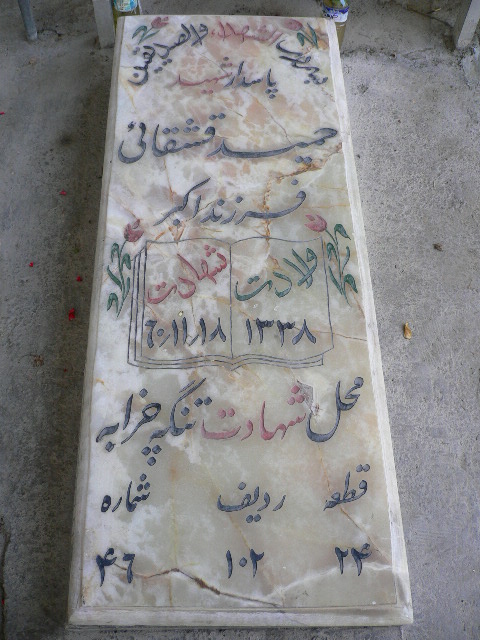 بسم رب الشهداء والصدیقین
پاسدار شهید
حمید قشقائی
فرزند اکبر
ولادت شهادت
۱۳۳۸ ۶۰٫۱۱٫۱۸
محل شهادت تنگه چزابه
قطعه ردیف شماره
۲۴ ۱۰۲ ۴۶